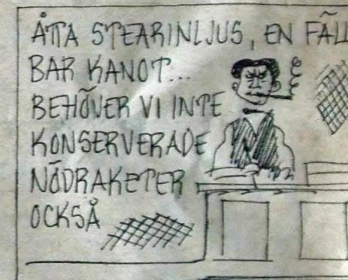 ÅTTA STEARINLJUS, EN FÄLL
BAR KANOT...
BEHÖVER VI INTE
KONSERVERADE
NÖDRAKETER
OCKSÅ